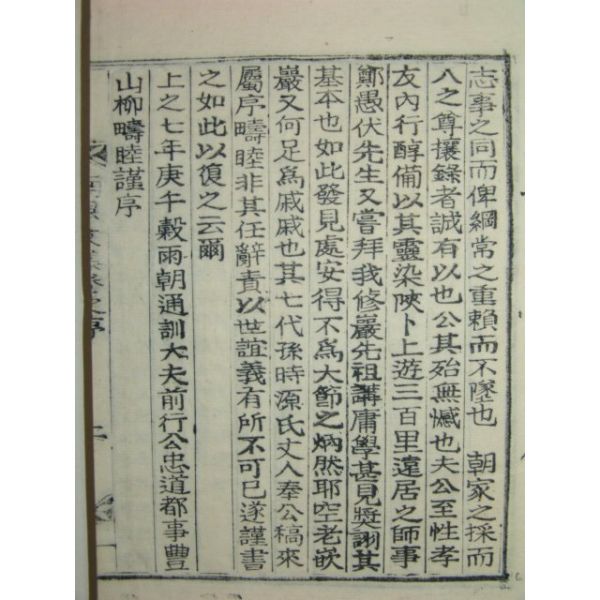 志事之同而俾綱常之重賴而不墜也 朝家之採而
八之尊攘錄者誠有以也公其殆無憾也夫公至性孝
友內行醇備以其靈染陜卜上遊三百里違居之師事
鄭愚伏先生又嘗拜我修巖先祖講庸學甚見奬詡其
基本也如此發見處安得不爲大節之炳然耶空老嵌
巖又何足爲戚戚也其七代孫時源氏丈人奉公稿來
屬序疇睦非其任辭責以世誼義有所不可已遂謹書
之如此以復之云爾
上之七年庚午穀雨朝通訓大夫前行公忠道都事豐
山柳疇睦謹序
之序
二